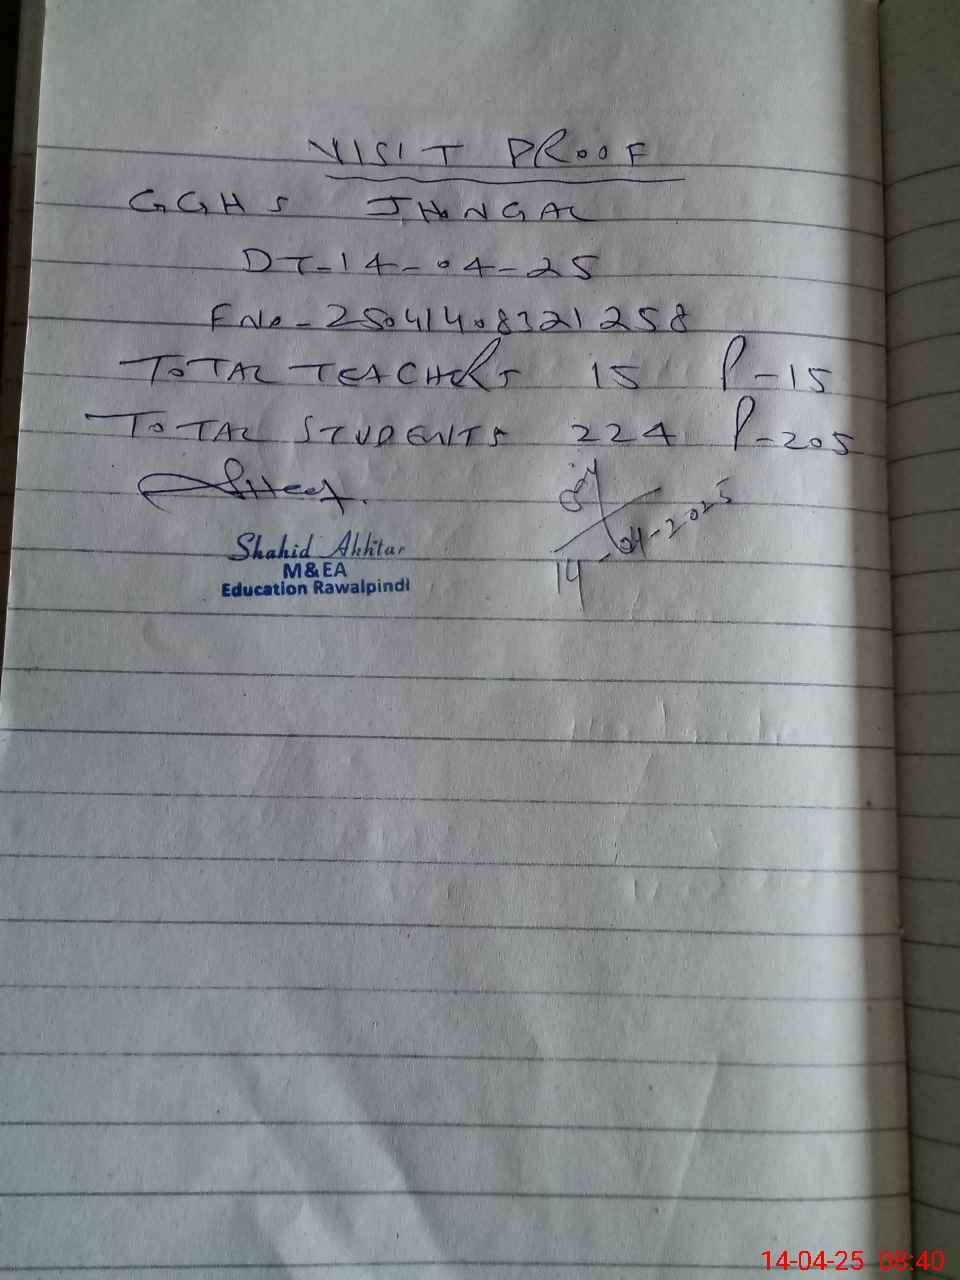 VISIT PROOF
GGHS JHNGAL
DT-14-04-25
FNo-25041408321258
TOTAL TEACHERS 15 P-15
TOTAL STUDENTS 224 P-205
Shahid Akhtar
M&EA
Education Rawalpindi
14-04-2025
14-04-25 08:40